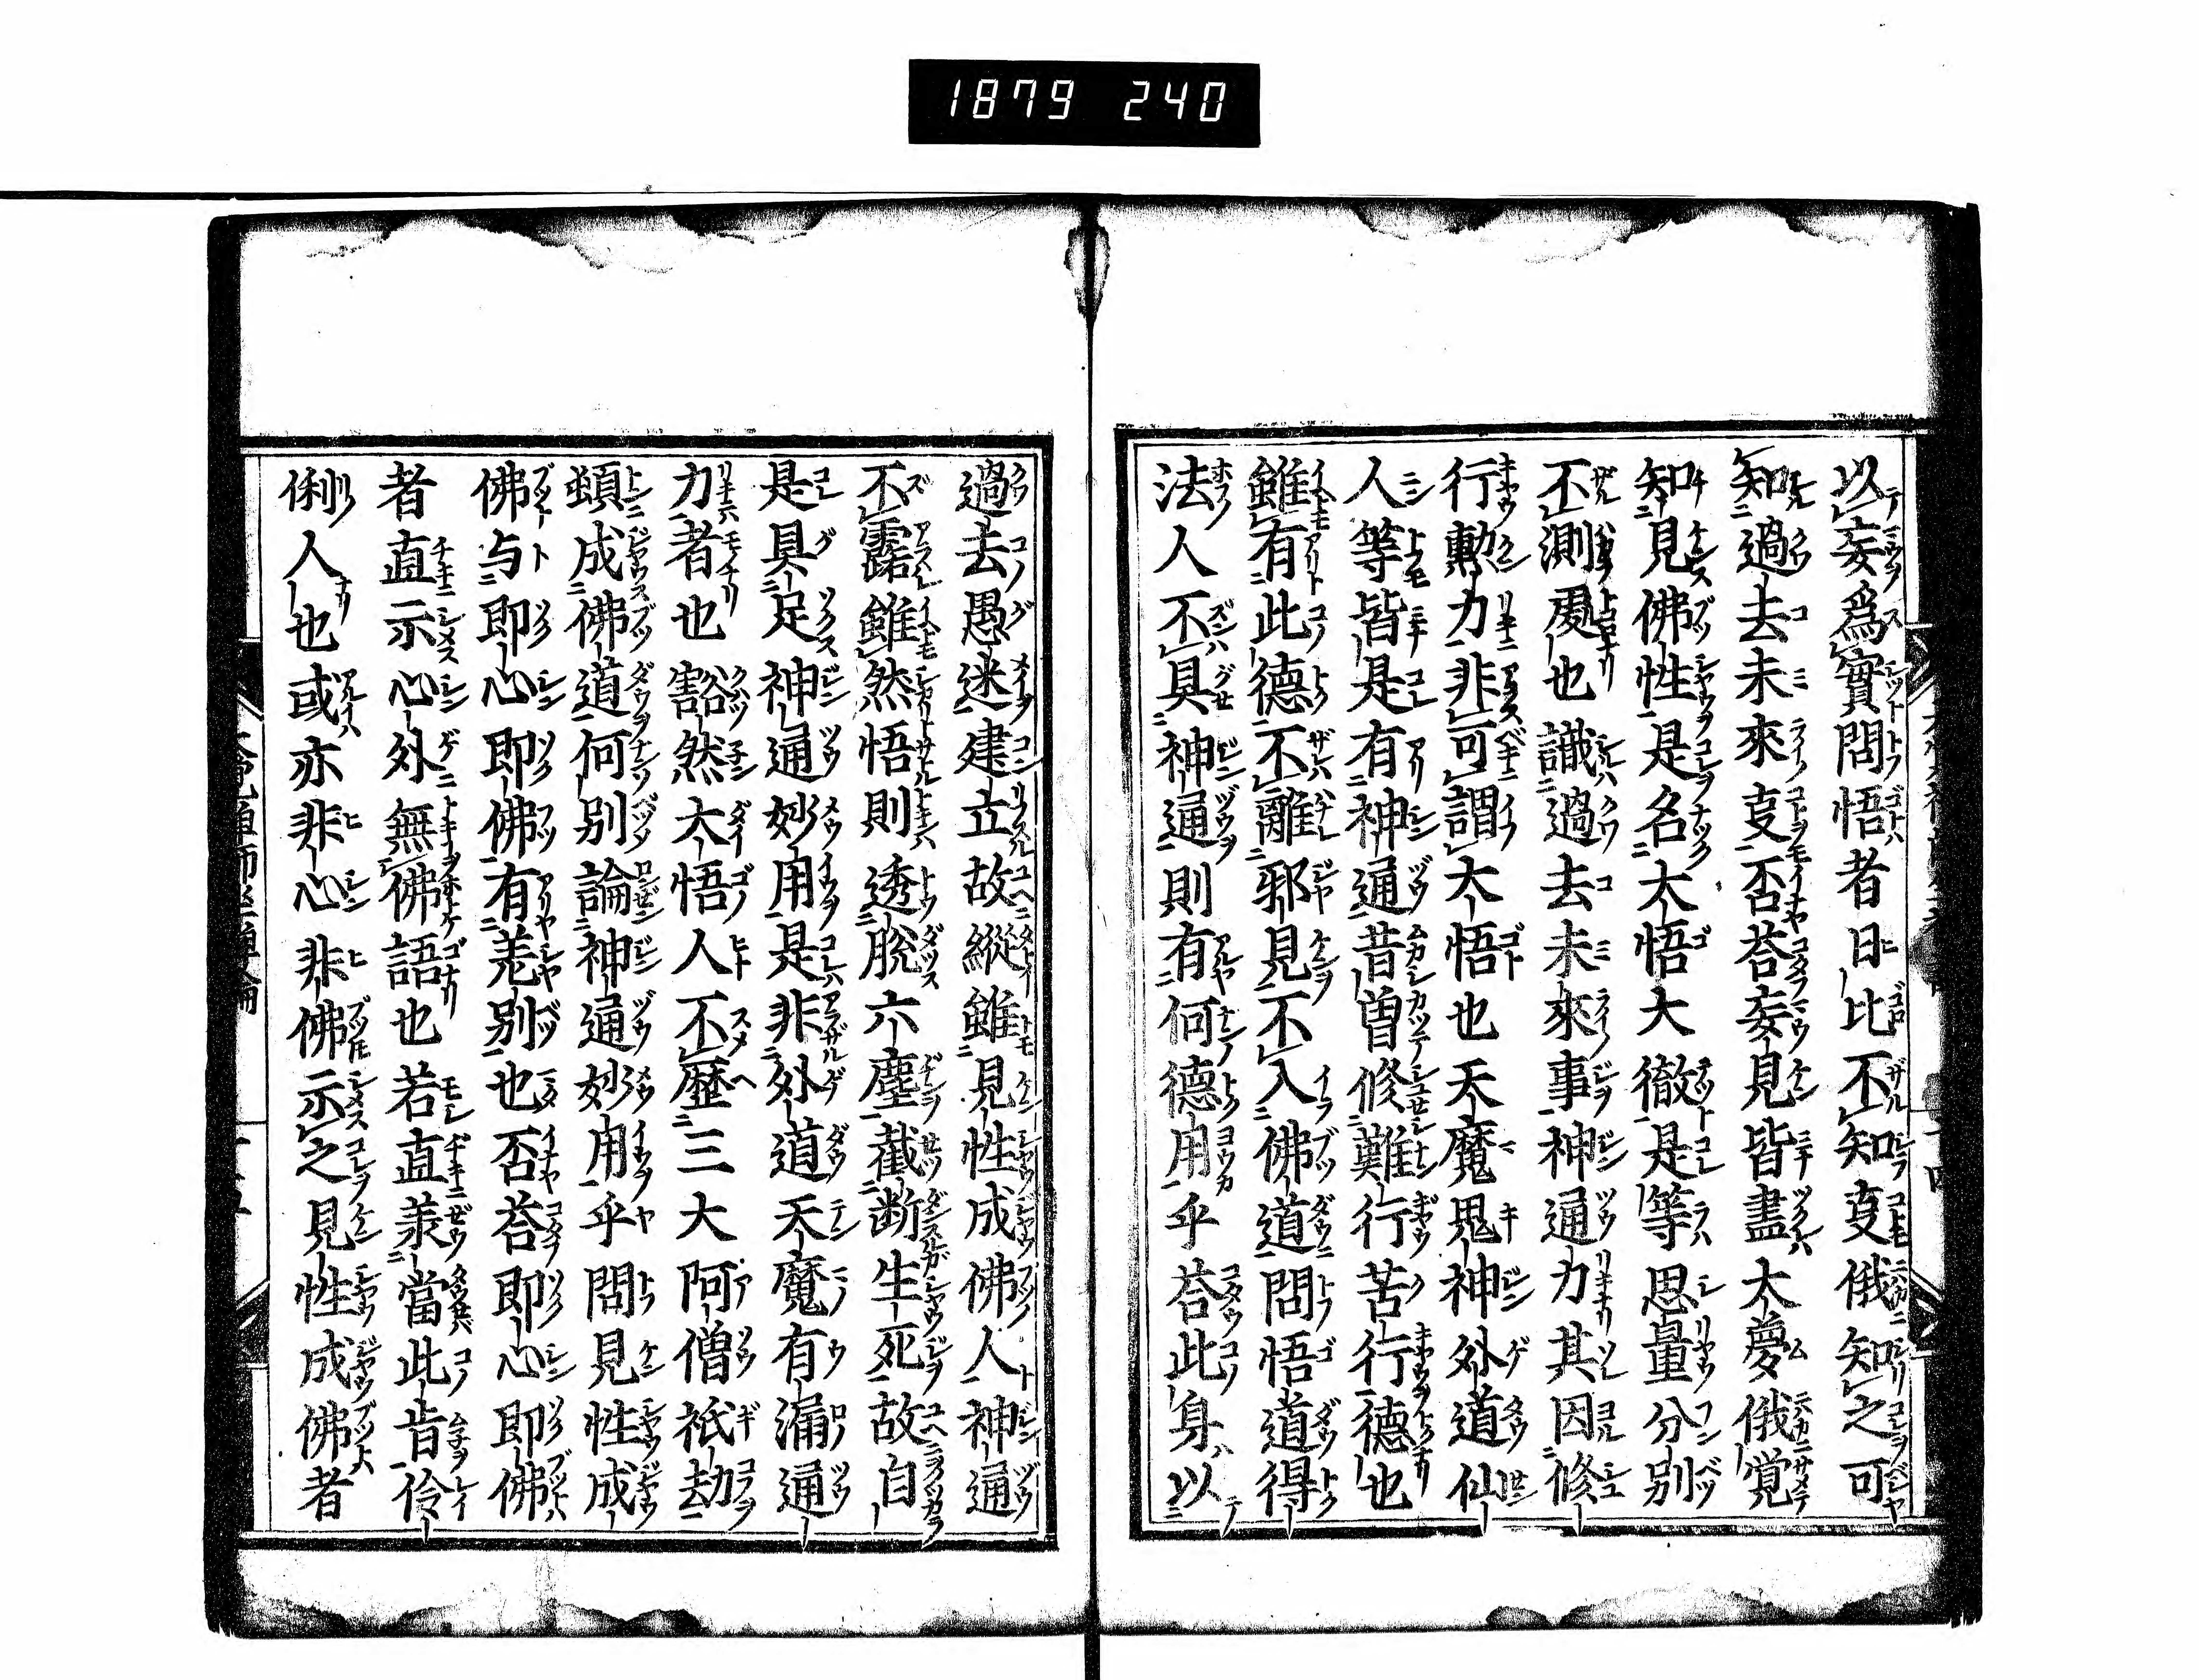 1879 240
以妄爲實問悟者日比不知㕝俄知之可
知過去未來㕝否荅妄見皆盡大夢俄覚
知見佛性是名大悟大徹是等思量分别
不測處也識過去未來事神通力其因修
行勳力非可謂大悟也天魔鬼神外道仙
人等皆是有神通昔曽修難行苦行德也
雖有此德不離邪見不入佛道問悟道得
法人不具神通則有何德用乎荅此身以
過去愚迷建立故縱雖見性成佛人神通
不露雖然悟則透脱六塵截断生死故自
是具足神通妙用是非外道天魔有漏通
力者也豁然大悟人不歷三大阿僧祇劫
頓成佛道何别論神通妙用乎問見性成
佛与即心即佛有差别也否荅即心即佛
者直示心外無佛語也若直羕當此旹伶
俐人也或亦非心非佛示之見性成佛者